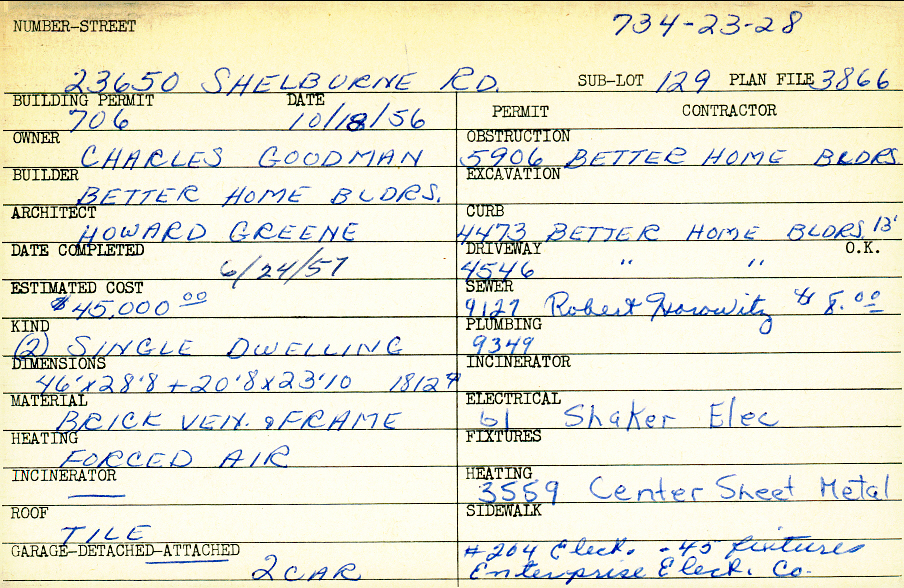 734-23-28
NUMBER-STREET
23650 SHELBURNE RD. SUB-LOT 129 PLAN FILE 3866
BUILDING PERMIT DATE
706 10/18/56
OWNER
CHARLES GOODMAN
BUILDER
BETTER HOME BLDRS.
ARCHITECT
HOWARD GREENE
DATE COMPLETED
6/24/57
ESTIMATED COST
$45,000 00
KIND
(2) SINGLE DWELLING
DIMENSIONS
46'x28'8 + 20'8x23'10 1812
MATERIAL
BRICK VEN. & FRAME
HEATING
FORCED AIR
INCINERATOR
—
ROOF
TILE
GARAGE-DETACHED-ATTACHED
2 CAR
PERMIT CONTRACTOR
OBSTRUCTION
5906 BETTER HOME BLDRS.
EXCAVATION
CURB
4473 BETTER HOME BLDRS. 13'
DRIVEWAY O.K.
4546 " "
SEWER
9127 Robert Horowitz $8.00
PLUMBING
9349
INCINERATOR
ELECTRICAL
61 Shaker Elec
FIXTURES
HEATING
3559 Center Sheet Metal
SIDEWALK
#204 Elect. - 45 fixtures
Enterprise Elect. Co.